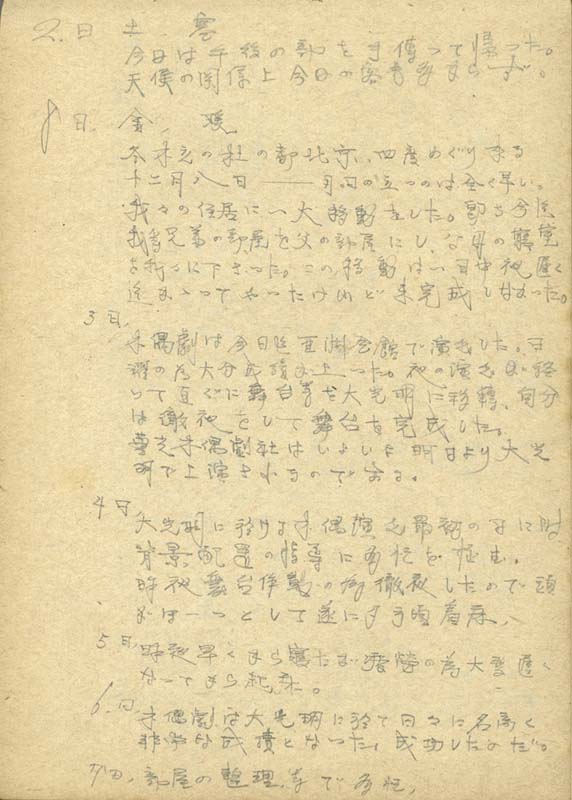 2.日 土 雲
今日は午後の部を手傳って帰った。
天候の関係上今日の客もあまらず。
8日 金、暖
冬 の杜の都北京、四度めぐり来る
十二月八日 ── 月日の立つのは全く早い。
我々の住居に一大移動をした。即ち今迄
我等兄弟の部屋を父の部屋にし、父母の寝室
を我々に下さった。この移動は一日中夜遅く
迄かゝってやったけれど未完成しなかった。
3日、
木偶劇は今日迄亜洲会館で演出した。日
曜の為大分成績が上った。夜の演出が終
って直ぐに舞台等を大光明に移轉、自分
は徹夜をして舞台を完成した。
木偶劇社はいよいよ明日より大光
明で上演されるのである。
4日
大光明に於ける木偶演出最初の日に付
背景配置の指導に多忙を極む。
昨夜舞台作製の為徹夜したので頭
がぼーっとして遂に夕方頃着床、
5日、昨夜早くから寝たが疲労の為大変遅く
なってから起床。
6.日、
木偶劇は大光明に於て日々に名高く
非常な成績となった、成功したのだ。
7日、部屋の整理、等で多忙、